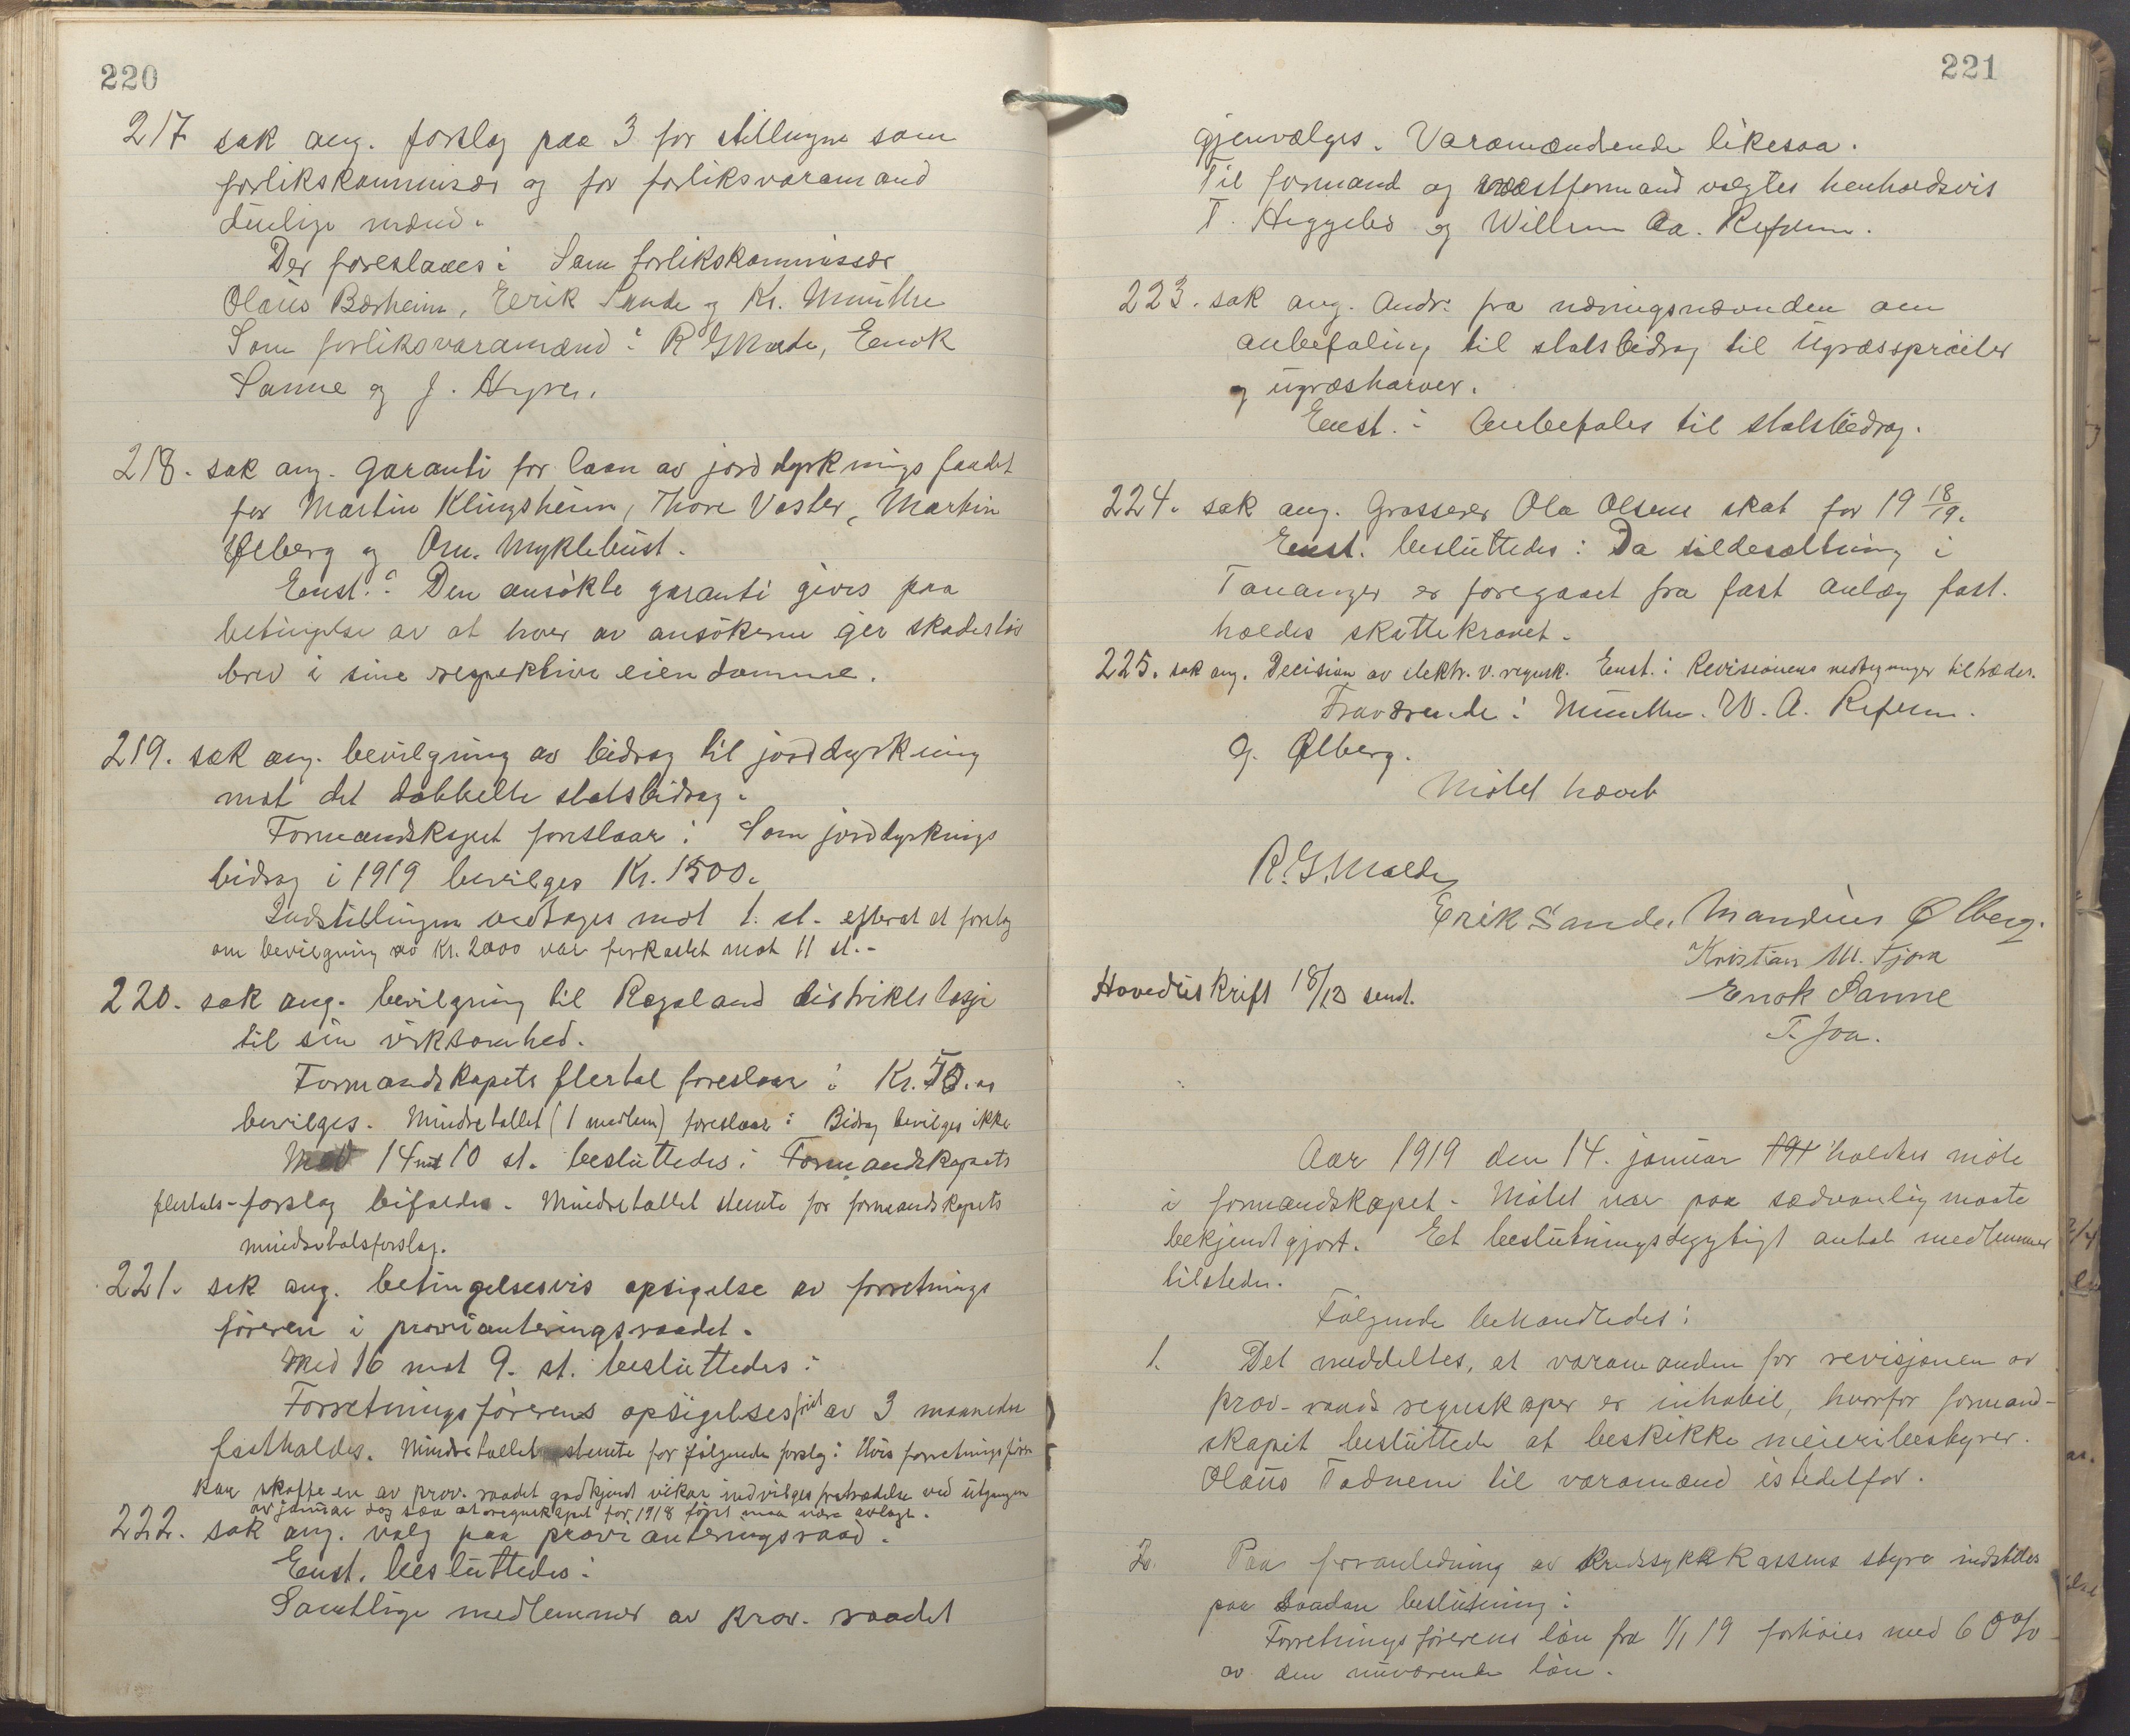 220
217 sak ang. forslag paa 3 for stillingen som
forlikskommisær og for forliksvaramand
tjenlige mænd.
Der foreslaaes: Som forlikskommissær
Olaus Børheim, Eerik Sande og Kr. Munthe
Som forliksvaramænd: R G Malde, Enok
Sanne og J.
218. sak ang. garanti for laan av jorddyrknings fondet
for Martin Klingsheim, Thore Vaster, Martin
Ølberg og Om. Myklebust.
Enst.: Den ansøkte garanti gives paa
betingelse av at hver av ansøkerne gir skadesløs
brev i sine respektive eiendomme.
219. sak ang. bevilgning av bidrag til jorddyrkning
mot det dobbelte statsbidrag.
Formandskapet foreslaar: Som jorddyrknings
bidrag i 1919 bevilges Kr. 1500.
Indstillingen vedtages mot 1. st. efterat et forslag
om bevilgning av Kr. 2000 var forkastet mot 11 st.-
220. sak ang. bevilgning til Rogaland distriktslosje
til sin virksomhed.
Formandskapets flertal foreslaar: Kr.
bevilges. Mindretallet (1 medlem) foreslaar: Bidrag bevilges ikke
Med 14 mot 10 st. besluttedes: Formandskapets
flertals-forslag bifaldes. Mindretallet stemte for formandskapets
mindretalsforslag.
221. sak ang. betingelsesvis opsigelse av forretnings
føreren i provianteringsraadet.
Med 16 mot 9. st. besluttedes:
Forretningsførerens opsigelsesfrist av 3 maaneder
fastholdes. Mindretallet stemte for følgende forslag: Hvis forretningsføre
kan skaffe en av prov. raadet godkjent vikar indvilges fratrædelse ved utgangen
av januar dog saa at regnskapet for 1918 først maa være avlagt.
222. sak ang. valg paa provianteringsraad.
Enst. besluttedes:
Samtlige medlemmer av prov. raadet
221
gjenvælges. Varamændende likesaa.
Til formand og næstformand valgtes henholdsvis
T. Heggebø og Willum Aa. Refsum.
223. sak ang. Andr. fra næringsnævnden om
anbefaling til statsbidrag til Ugræssprøiter
og ugræsharver.
Enst.: Anbefales til statsbidrag.
224. sak ang. Grosserer Ola Olsens skat for 19 18/19.
Enst. besluttedes: Da sildesaltning i
Tananger er foregaaet fra fast anlæg fast.
holdes skattekravet.
225. sak ang. Decision av elektr. v. regnsk. Enst.: Revisionens nedtegninger tiltrædes.
Fraværende: Munthe. W. A. Refsum.
G. Ølberg.
Møtet hævet
R. G. Malde
Erik Sande. Mandius Ølberg.
Kristian M. Tjora
Hovedutskrift 18/12 sendt.
Enok Sanne
T. Joa.
Aar 1919 den 14. januar 191 holdtes møte
i formandskapet. Møtet var paa sædvanlig maate
bekjendtgjort. Et beslutningsdygtigt antal medlemmer
tilstede.
Følgende behandledes:
1. Det meddeltes, at varamanden for revisjonen av
prov-raads regnskaper er inhabil, hvorfor formand-
skapet besluttede at beskikke meieribestyrer.
Olaus Tadnem til varamand istedetfor.
2. Paa foranledning av Kredsykekassens styre indstilles
paa saadan beslutning:
Forretningsførerens løn fra 1/1 19 forhøies med 60%
av den nuværende løn.